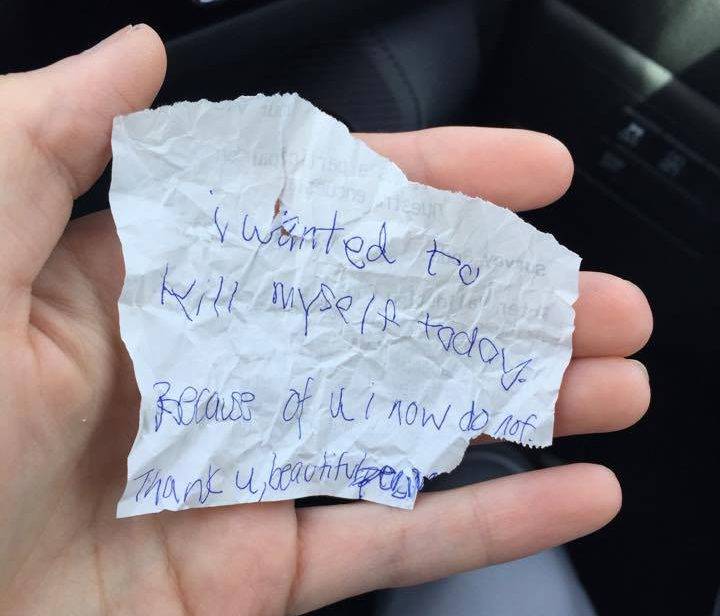 i wanted to
kill myself today.
Because of u i now do not.
Thank u, beautiful